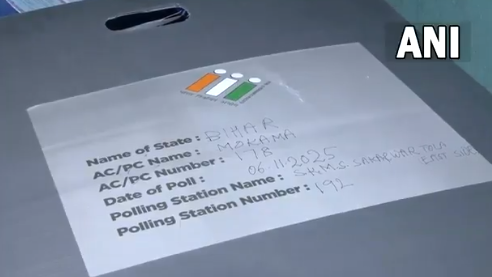 ANI
Name of State: BIHAR
AC/PC Name: MOKAMA
AC/PC Number: 178
Date of Poll: 06 11 2025
Polling Station Name: TOLA
Polling Station Number: 192